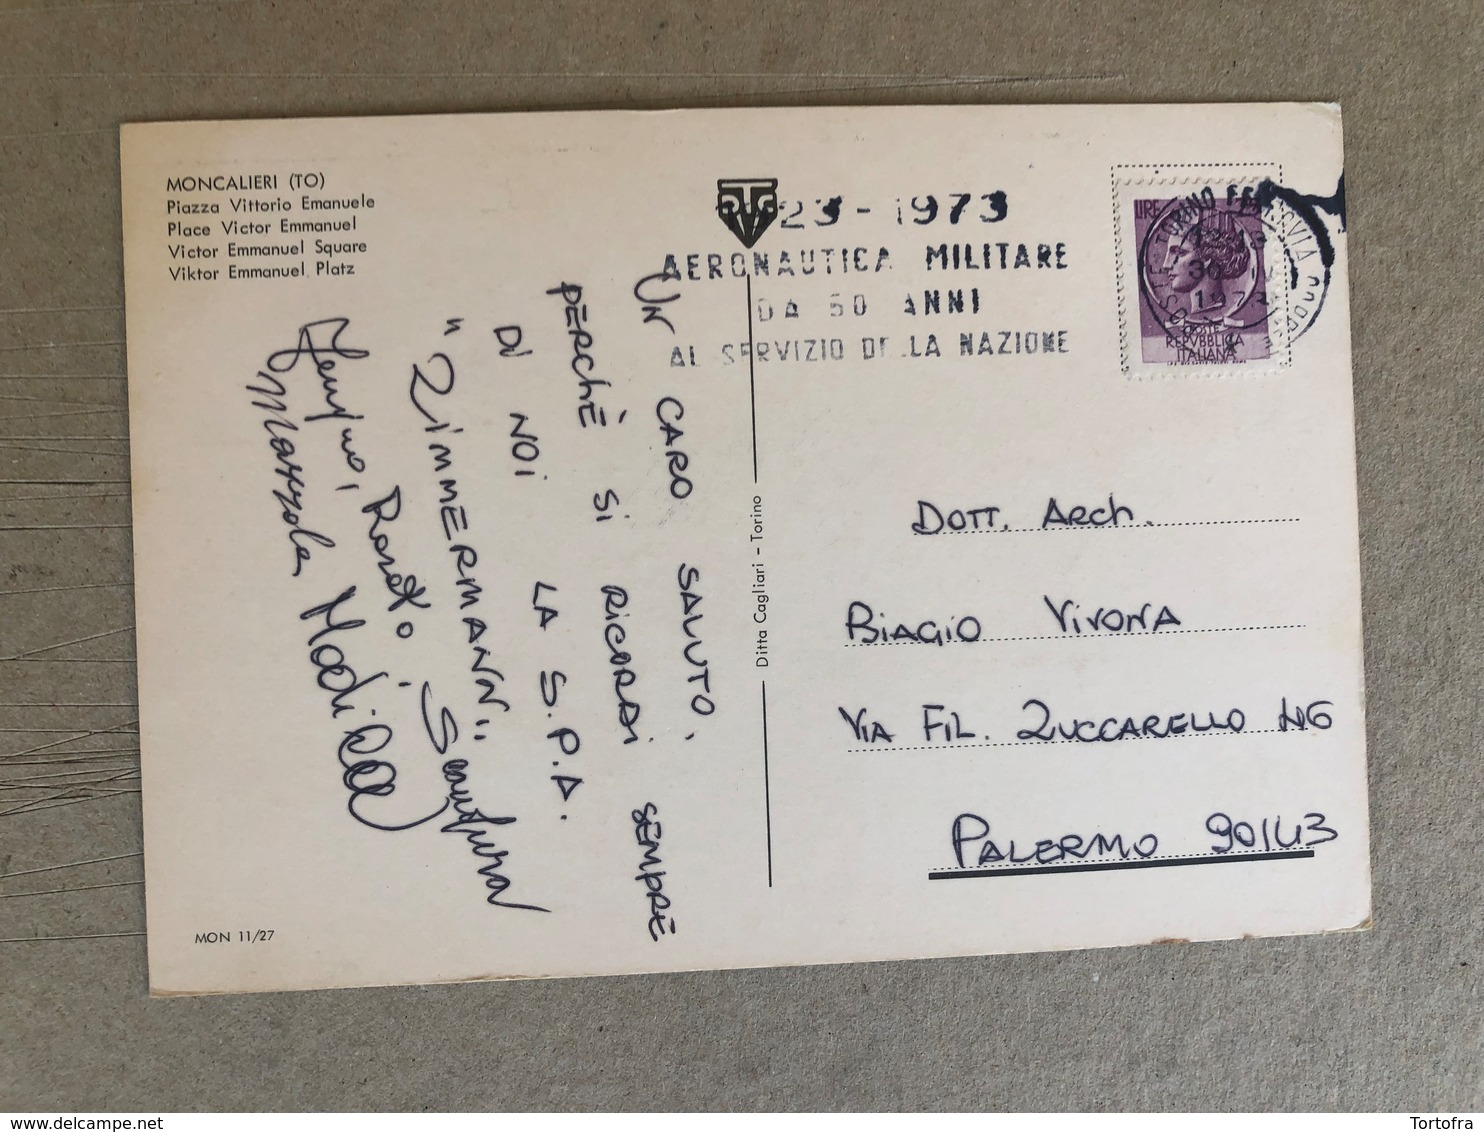 MONCALIERI (TO)
Piazza Vittorio Emanuele
Place Victor Emmanuel
Victor Emmanuel Square
Viktor Emmanuel Platz
23-1973
AERONAUTICA MILITARE
DA 50 ANNI
AL SERVIZIO DELLA NAZIONE
LIRE
TORINO
30
1973
POSTE
REPVBBLICA
ITALIANA
UN CARO SALUTO,
PERCHÈ SI RICORDI SEMPRE
DI NOI LA S.P.A.
"ZIMMERMANN"
Mazzola
Ditta Cagliari - Torino
DOTT. ARCH.
BIAGIO VIVONA
VIA FIL. ZUCCARELLO
PALERMO 90143
MON 11/27
Tortofra